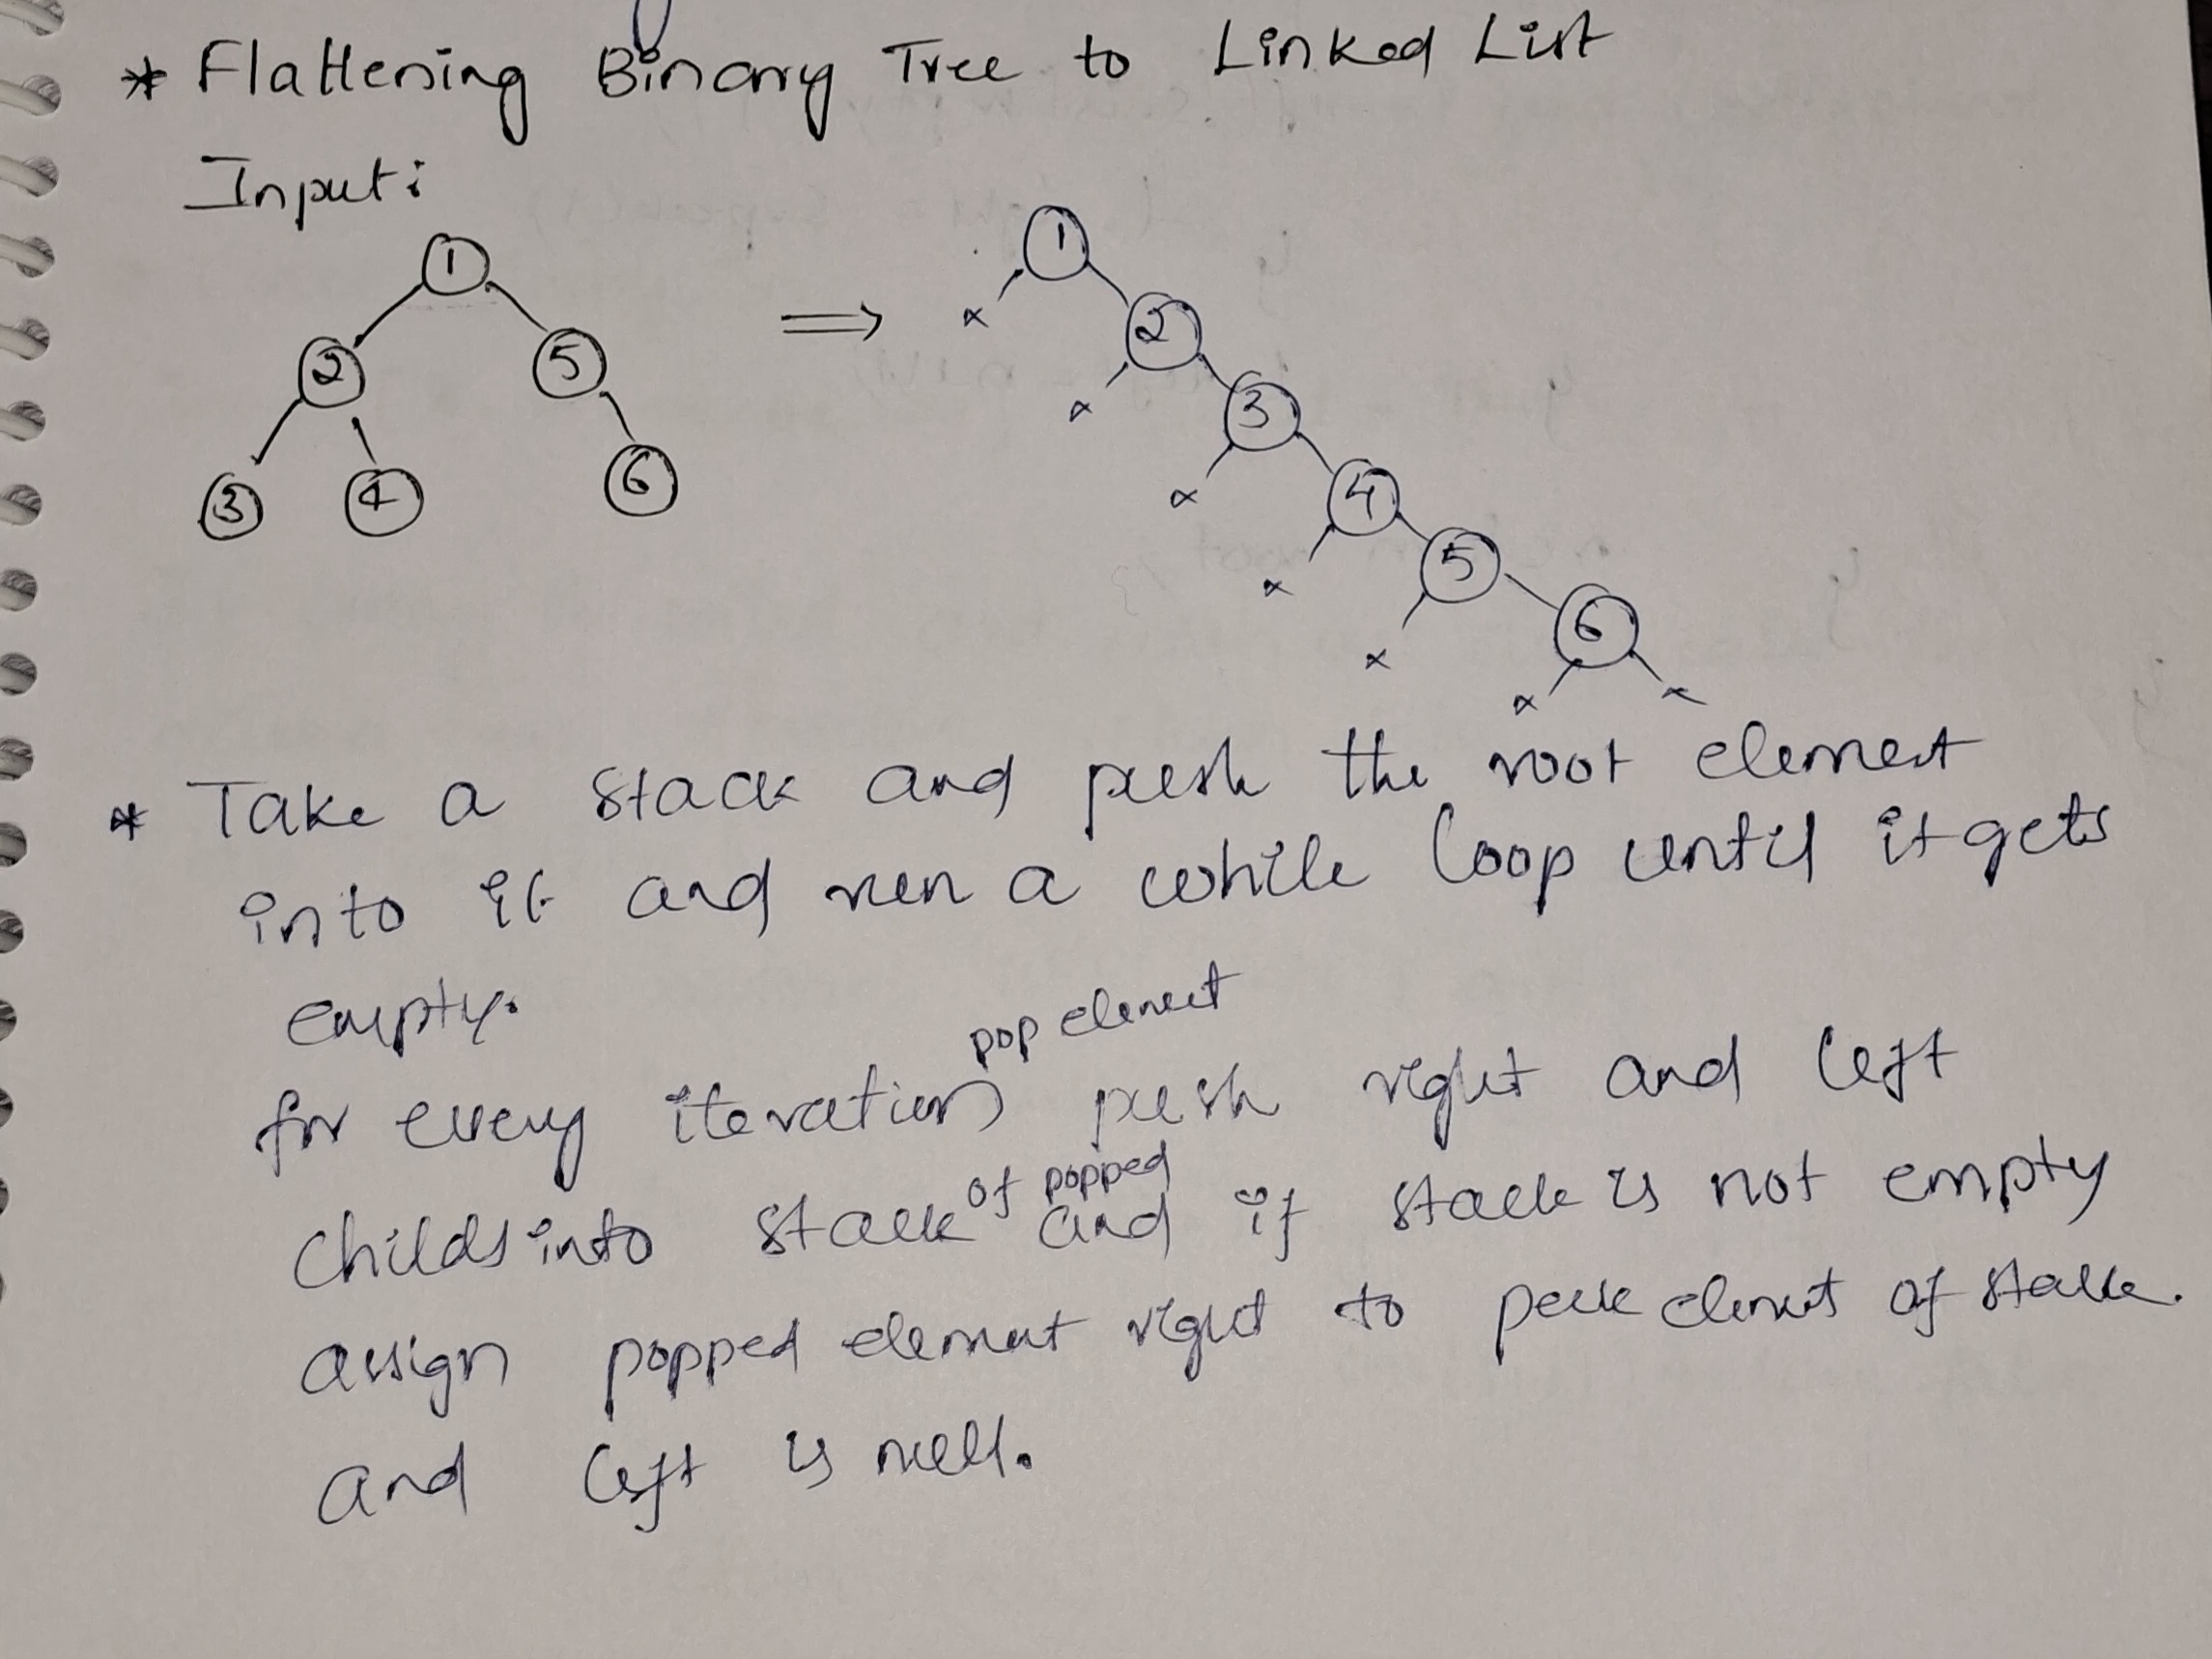 * Flattening Binary Tree to Linked List
Input:
1
1
2
5
2
3
3
4
6
4
5
6
* Take a stack and push the root element
into it and run a while loop until it gets
empty.
pop element
for every iteration push right and left
of popped
childs into stack and if stack is not empty
assign popped element right to peek element of stack.
and left is null.